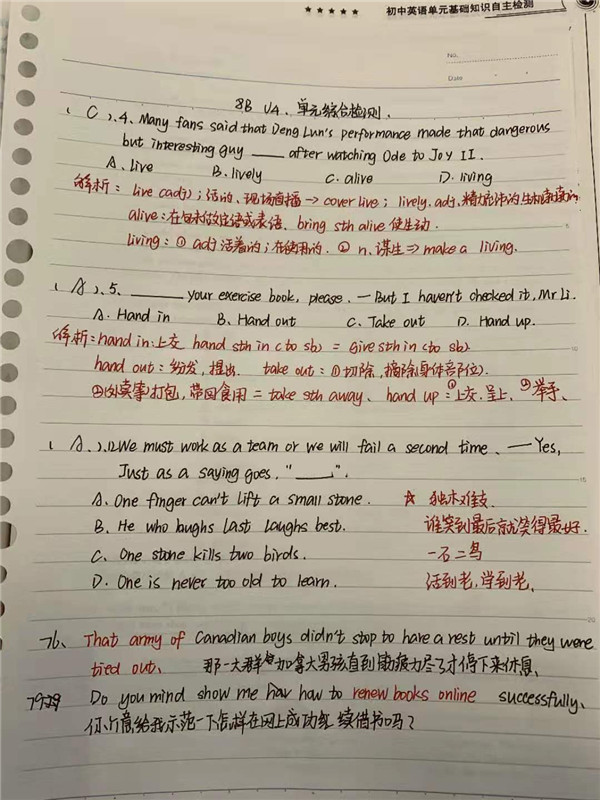 ★ ★ ★ ★ ★ 初中英语单元基础知识自主检测
No.
Date
8B U4、单元综合检测.
( C )、4、Many fans said that Deng Lun's performance made that dangerous
but interesting guy ____ after watching Ode to Joy II.
A. Live B. lively C. alive D. living
解析: live (adj); 活的、现场直播 → cover live; lively. adj. 精
alive: 在句末做定语或表语. bring sth alive 使生动.
living: ① adj 活着的; 在使用的. ② n. 谋生 ⇒ make a living.
( A )、5、______ your exercise book, please. — But I haven't checked it, Mr Li.
A. Hand in B. Hand out C. Take out D. Hand up.
解析: hand in: 上交 hand sth in (to sb) = Give sth in (to sb)
hand out: 分发, 提出. take out: ① 切除, 摘除(身体部位).
② (外卖等)打包, 带回食用 = take sth away、 hand up: ① 上交. 呈上. ② 举手、
( A、)、12、We must work as a team or we will fail a second time、 — Yes,
Just as a saying goes, "____".
A. One finger can't lift a small stone. ☆ 独木难支.
B. He who laughs last laughs best. 谁笑到最后就笑得最好.
C. One stone kills two birds. 一石二鸟
D. One is never too old to learn. 活到老, 学到老、
76、That army of Canadian boys didn't stop to have a rest until they were
tied out、 那一大群加拿大男孩直到筋疲力尽了才停下来休息、
79 Do you mind show me how to renew books online successfully、
你介意给我示范一下怎样在网上成功续借书吗?